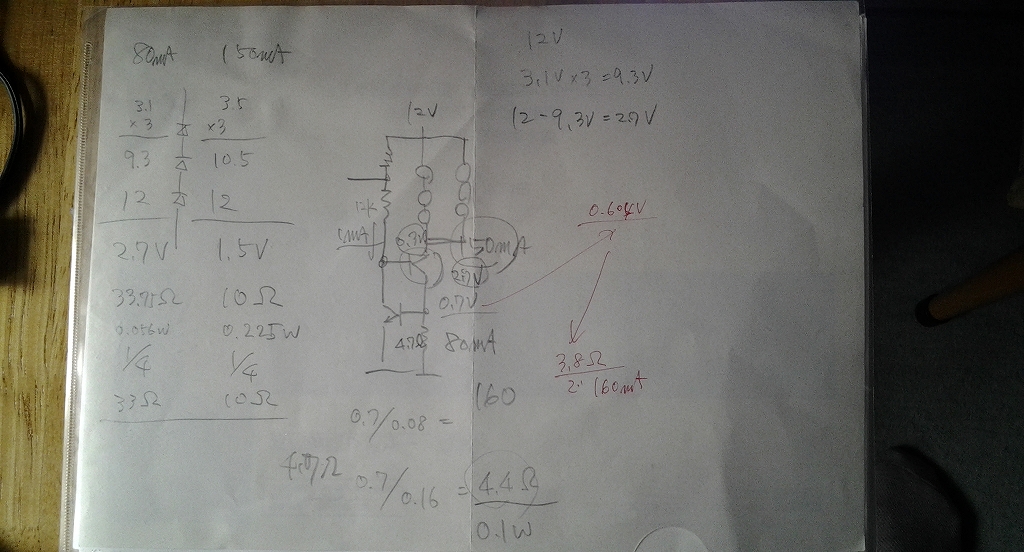 80mA 150mA
3.1
×3
9.3
12
2.7V
33.75Ω
0.056W
1/4
33Ω
3.5
×3
10.5
12
1.5V
10Ω
0.225W
1/4
10Ω
12V
0.7V
50mA
2.7V
0.7V
80mA
160
0.7/0.08 =
0.7/0.16 = 4.4Ω
0.1W
12V
3.1V×3=9.3V
12-9.3V=2.7V
0.604V
3.8Ω
160mA